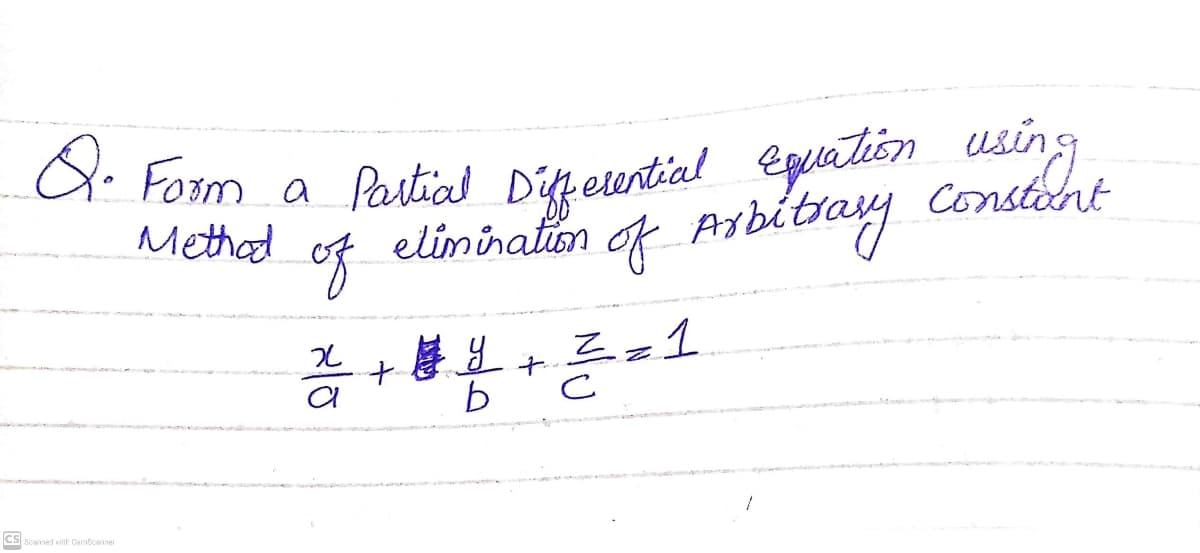 Q. Form a Partial Differential Equation using
Method of elimination of Arbitrary Constant
x/a + y/b + z/c = 1
CS Scanned with CamScanner